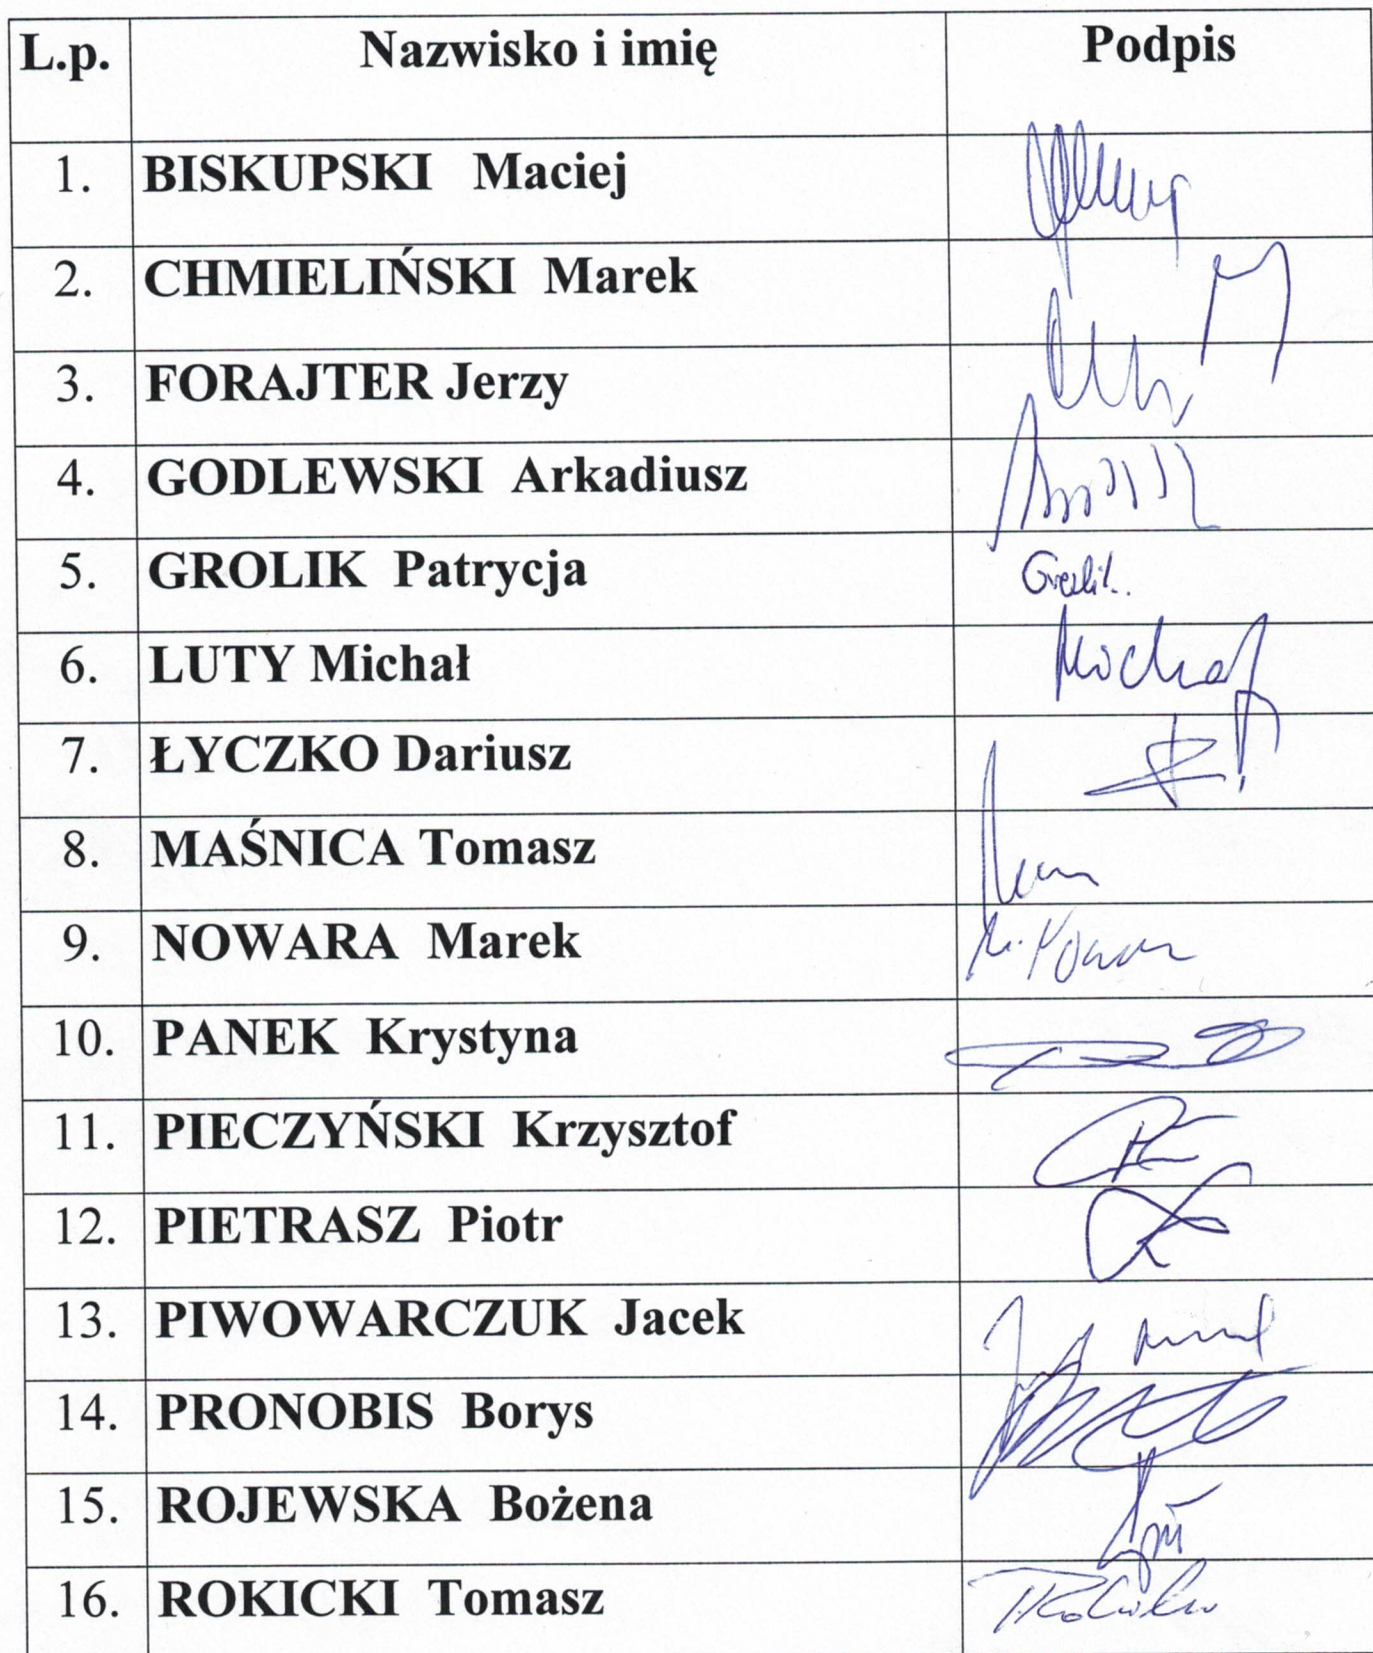 L.p. Nazwisko i imię Podpis
1. BISKUPSKI Maciej
2. CHMIELIŃSKI Marek
3. FORAJTER Jerzy
4. GODLEWSKI Arkadiusz
5. GROLIK Patrycja
6. LUTY Michał Michał
7. ŁYCZKO Dariusz
8. MAŚNICA Tomasz
9. NOWARA Marek
10. PANEK Krystyna
11. PIECZYŃSKI Krzysztof
12. PIETRASZ Piotr
13. PIWOWARCZUK Jacek
14. PRONOBIS Borys
15. ROJEWSKA Bożena
16. ROKICKI Tomasz